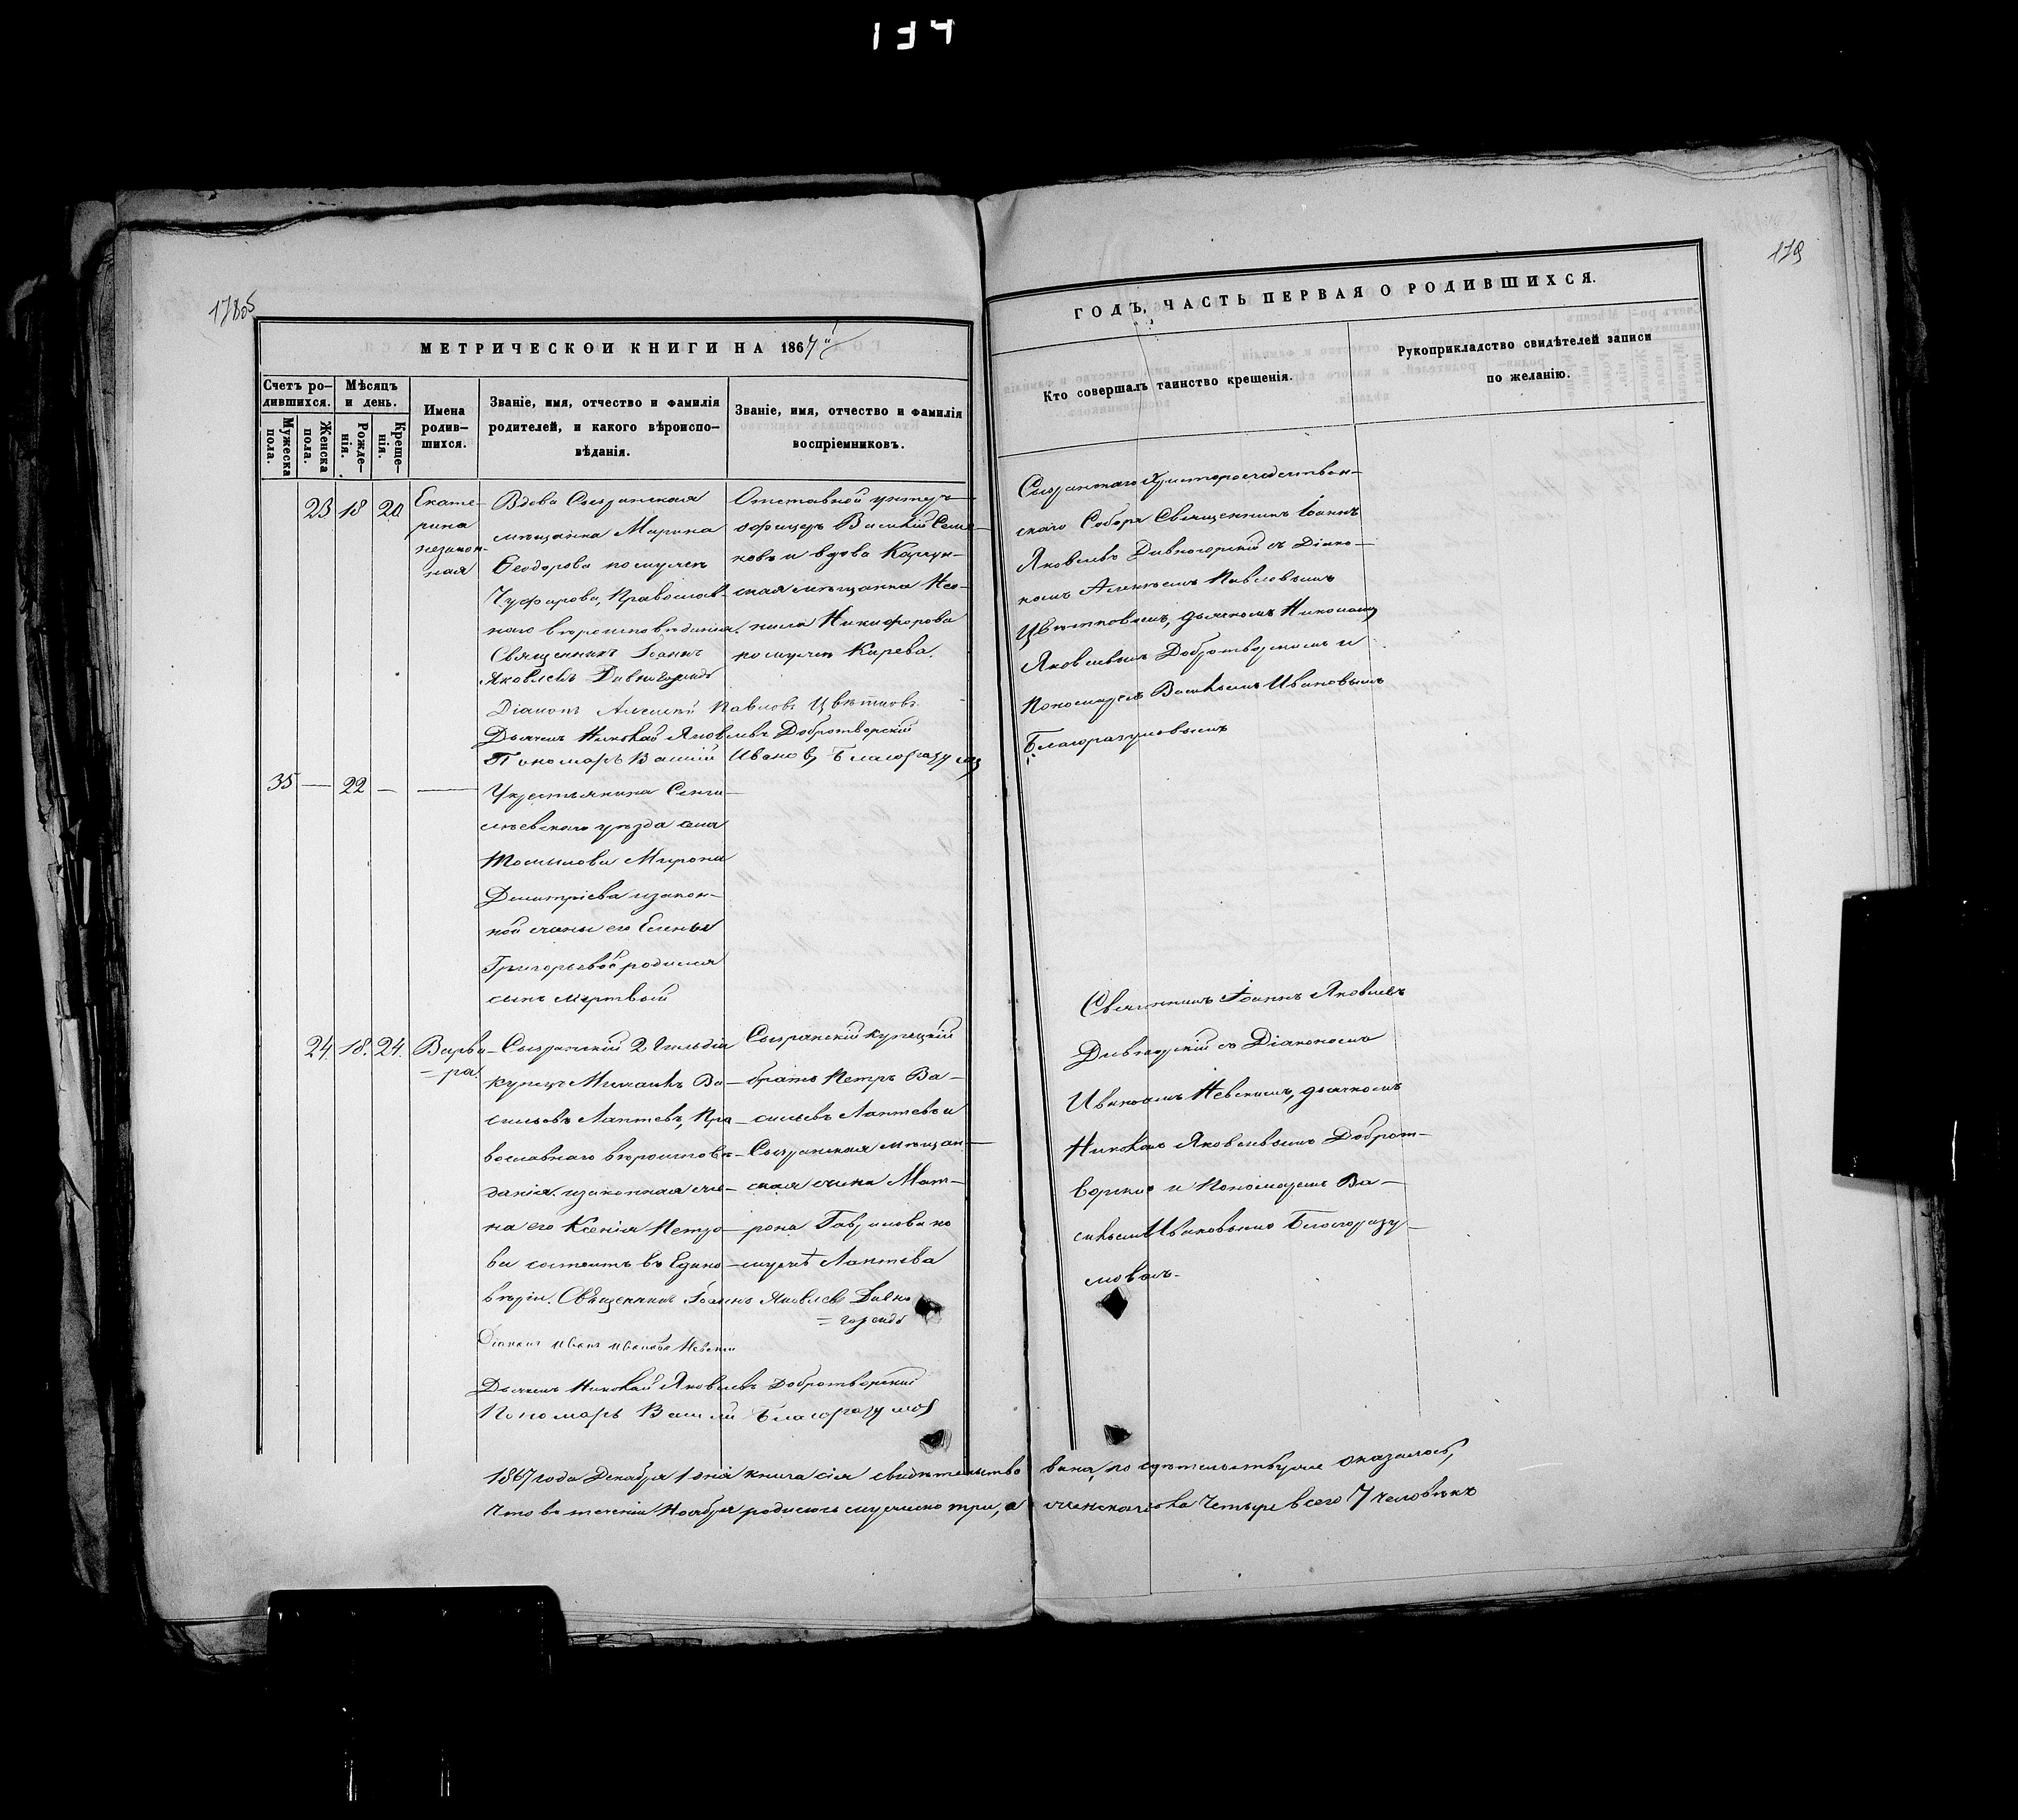 134
178об
179
МЕТРИЧЕСКОЙ КНИГИ НА 1867й
ГОДЪ, ЧАСТЬ ПЕРВАЯ О РОДИВШИХСЯ.
Счетъ ро-
дившихся.
Мужеска
пола.
Женска
пола.
Мѣсяцъ
и день.
Рожде-
нія.
Креще-
нія.
Имена
родив-
шихся.
Званіе, имя, отчество и фамилія
родителей, и какого вѣроиспо-
вѣданія.
Званіе, имя, отчество и фамилія
воспріемниковъ.
Кто совершалъ таинство крещенія.
Рукоприкладство свидѣтелей записи
по желанію.
23 18 20
Екате-
рина
незакон-
ная
Вдова Сызранская
мѣщанка Марина
Ѳеодорова по мужѣ
Чуфарова, Православ-
наго вѣроисповѣданія.
Священникъ Іоаннъ
Яковлевъ Дивногорскій
Діаконъ Алексѣй Павловъ Цвѣтковъ
Дьячекъ Николай Яковлевъ Добротворскій
Пономарь Василій Ивановъ Благоразумов
Отставной унтеръ-
офицеръ Василій
ковъ и вдова
ская мѣщанка Нео-
нила Никифорова
по мужѣ Карева.
Сызранскаго Христорождествен-
скаго Собора Священникъ Іоаннъ
Яковлевъ Дивногорскій съ Діако-
номъ Алексѣемъ Павловымъ
Цвѣтковымъ, дьячкомъ Николаемъ
Яковлевымъ Добротворскимъ и
Пономаремъ Васильемъ Ивановымъ
Благоразумовымъ
35 — 22 — —
У крестьянина Сенги-
леевскаго уѣзда села
Томылова Мирона
Димитріева и закон-
ной жены его Елены
Григорьевой родился
сынъ мертвый
24 18. 24.
Варва-
=ра.
Сызранскій 2 гильдіи
купецъ Михаилъ Ва-
сильевъ Лаптевъ, Пра-
вославнаго вѣроисповѣ-
данія. и законная же-
на его Ксенія Петро-
ва состоитъ въ Едино-
вѣріи. Священникъ Іоаннъ Яковлевъ Дивно
=горскій
Діаконъ Иванъ Ивановъ Невскій
Дьячекъ Николай Яковлевъ Добротворскій
Пономарь Василій Благоразумов
Сызранскій купецкій
братъ Петръ Ва-
сильевъ Лаптевъ и
Сызранская мѣщан-
ская жена Мат-
рона Гаврилова по
мужѣ Лаптева
Священникъ Іоаннъ Яковлевъ
Дивногорскій съ Діакономъ
Иваномъ Невскимъ, дьячкомъ
Николаемъ Яковлевымъ Доброт-
ворскимъ и Пономаремъ Ва-
сильемъ Ивановымъ Благоразу-
мовымъ.
1867 года Декабря 1 дня книга сія свидѣтельствована, по свидѣтельству же оказалось,
что въ теченіи Ноября родилось мужеска три, а женска пола четыре всего 7 человѣкъ